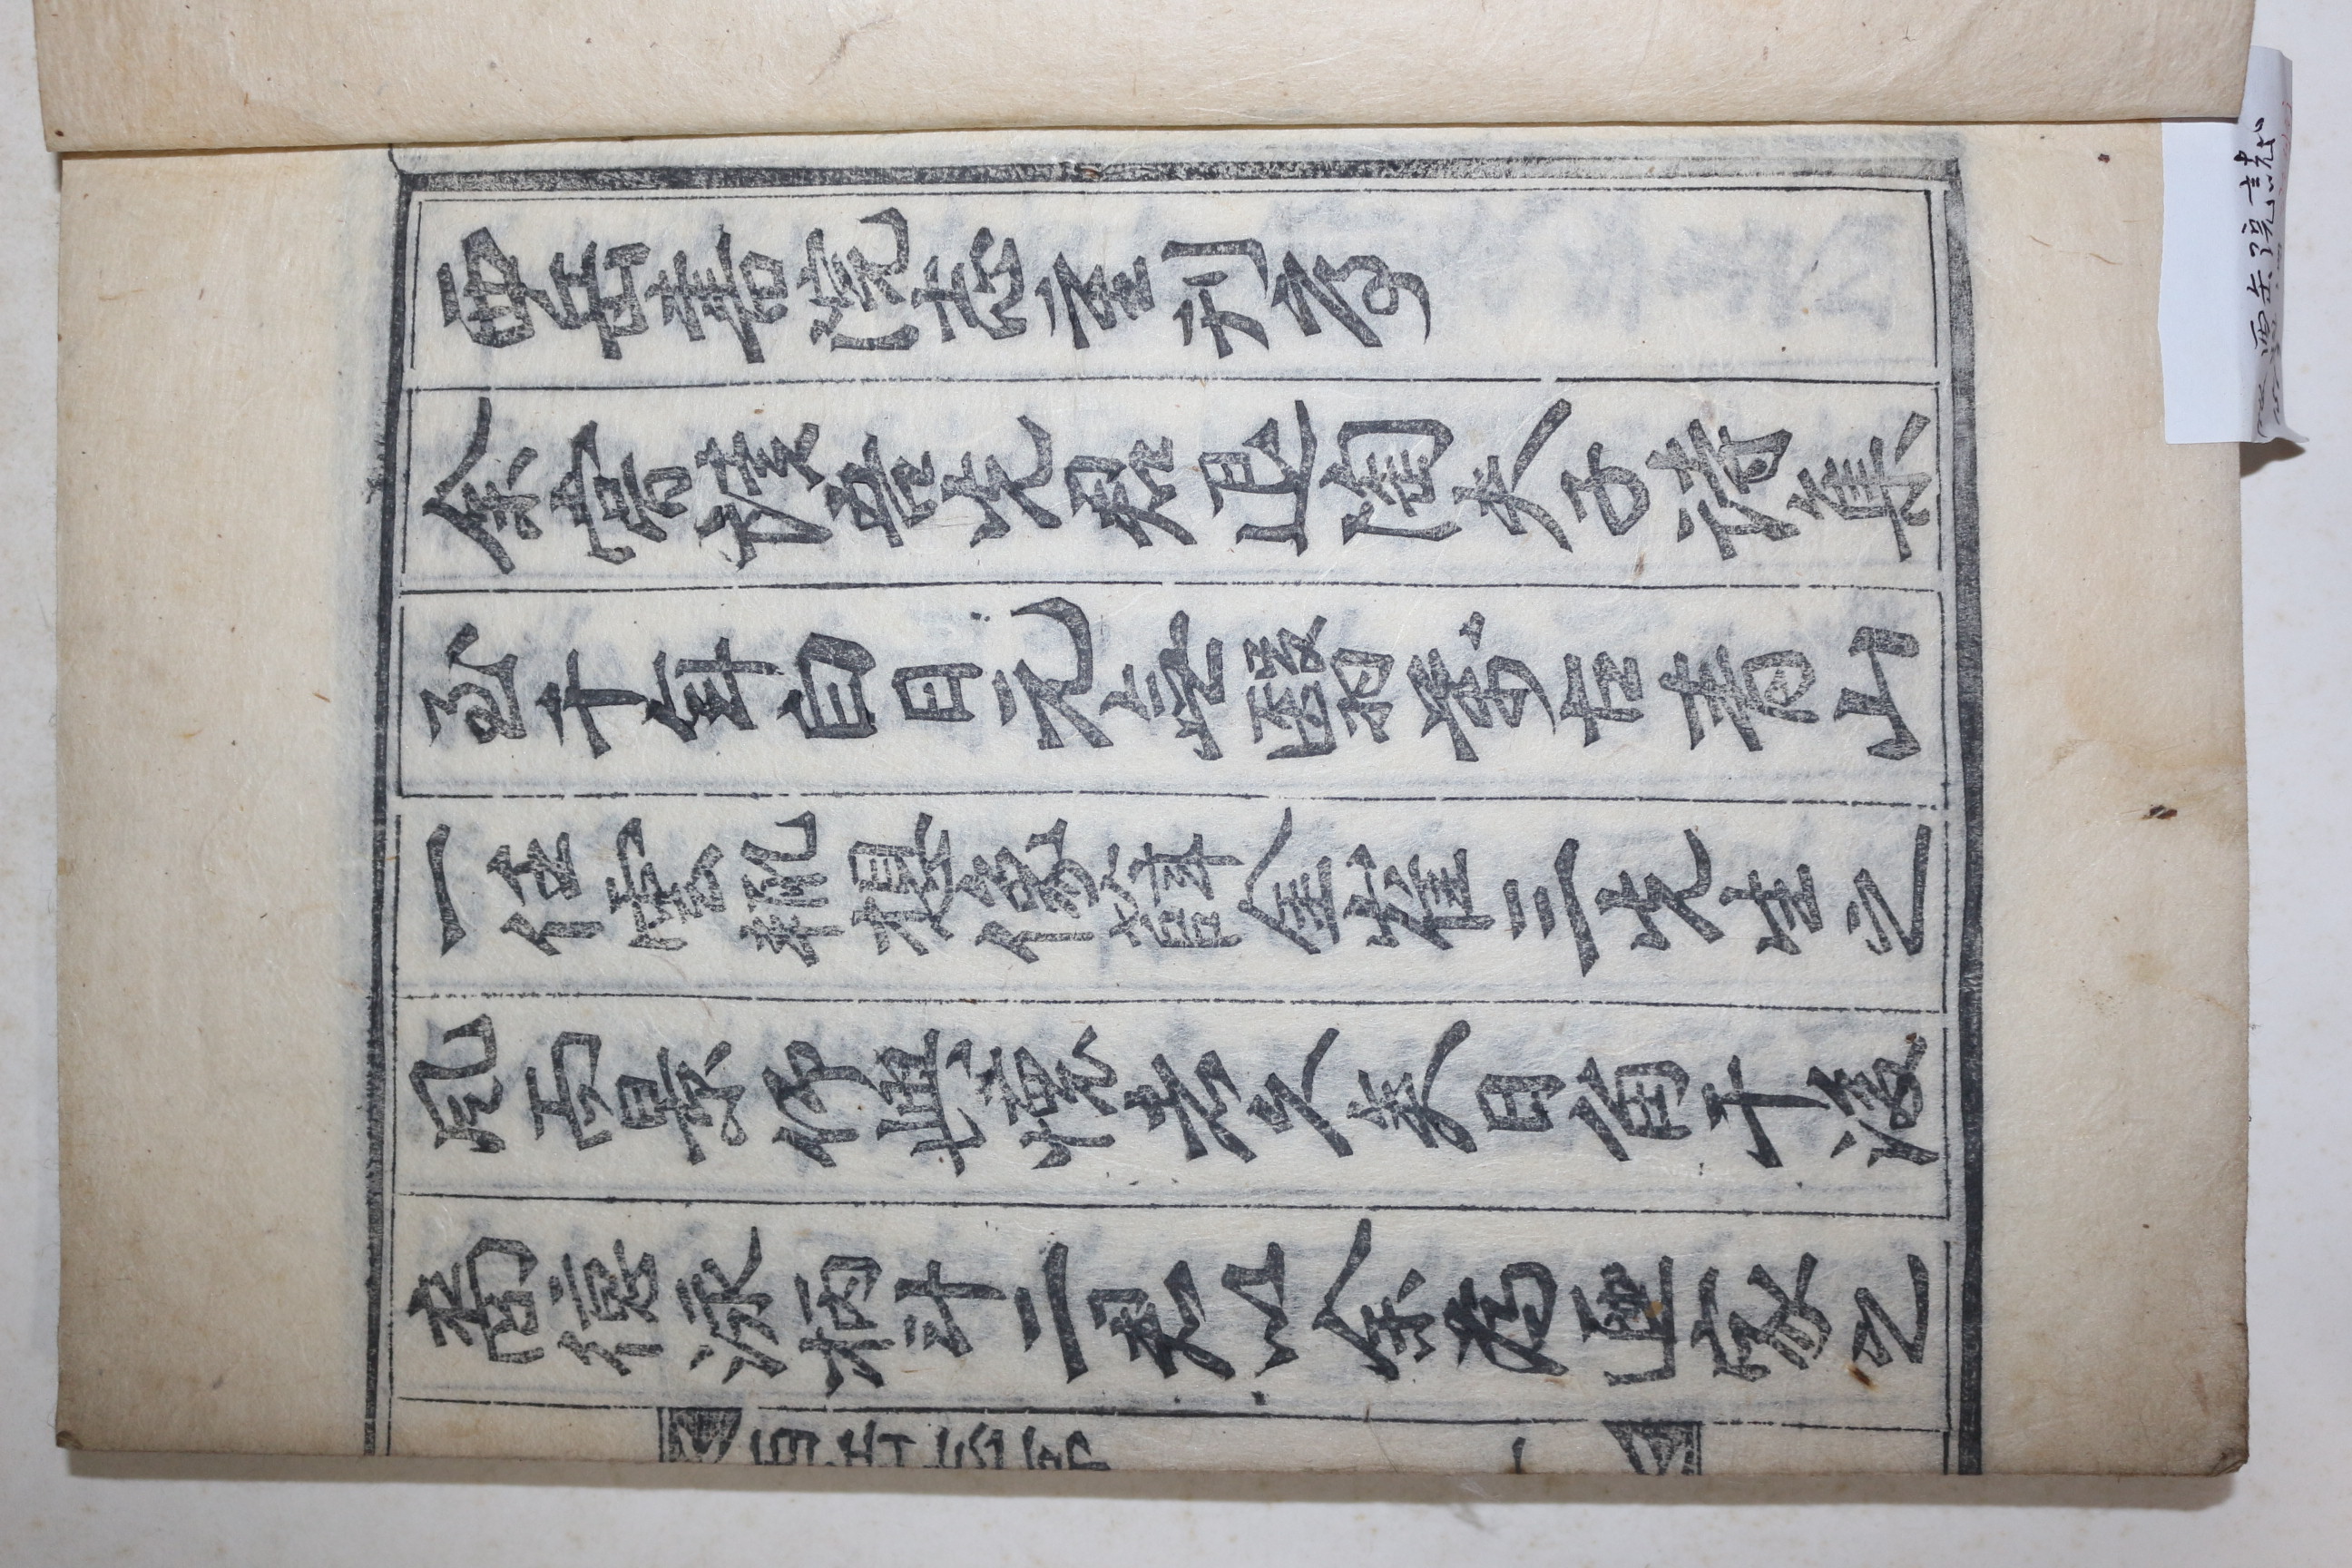 西岳書院志重刊序
余嘗讀吾先君退陶夫子詩集
至千年白日元無翳萬古青山
一任雲輒想像薛金崔三先生之
風而景仰興懷者久矣日甬干浚
裔德泳柄斗二君以余為逥家之
西岳院誌